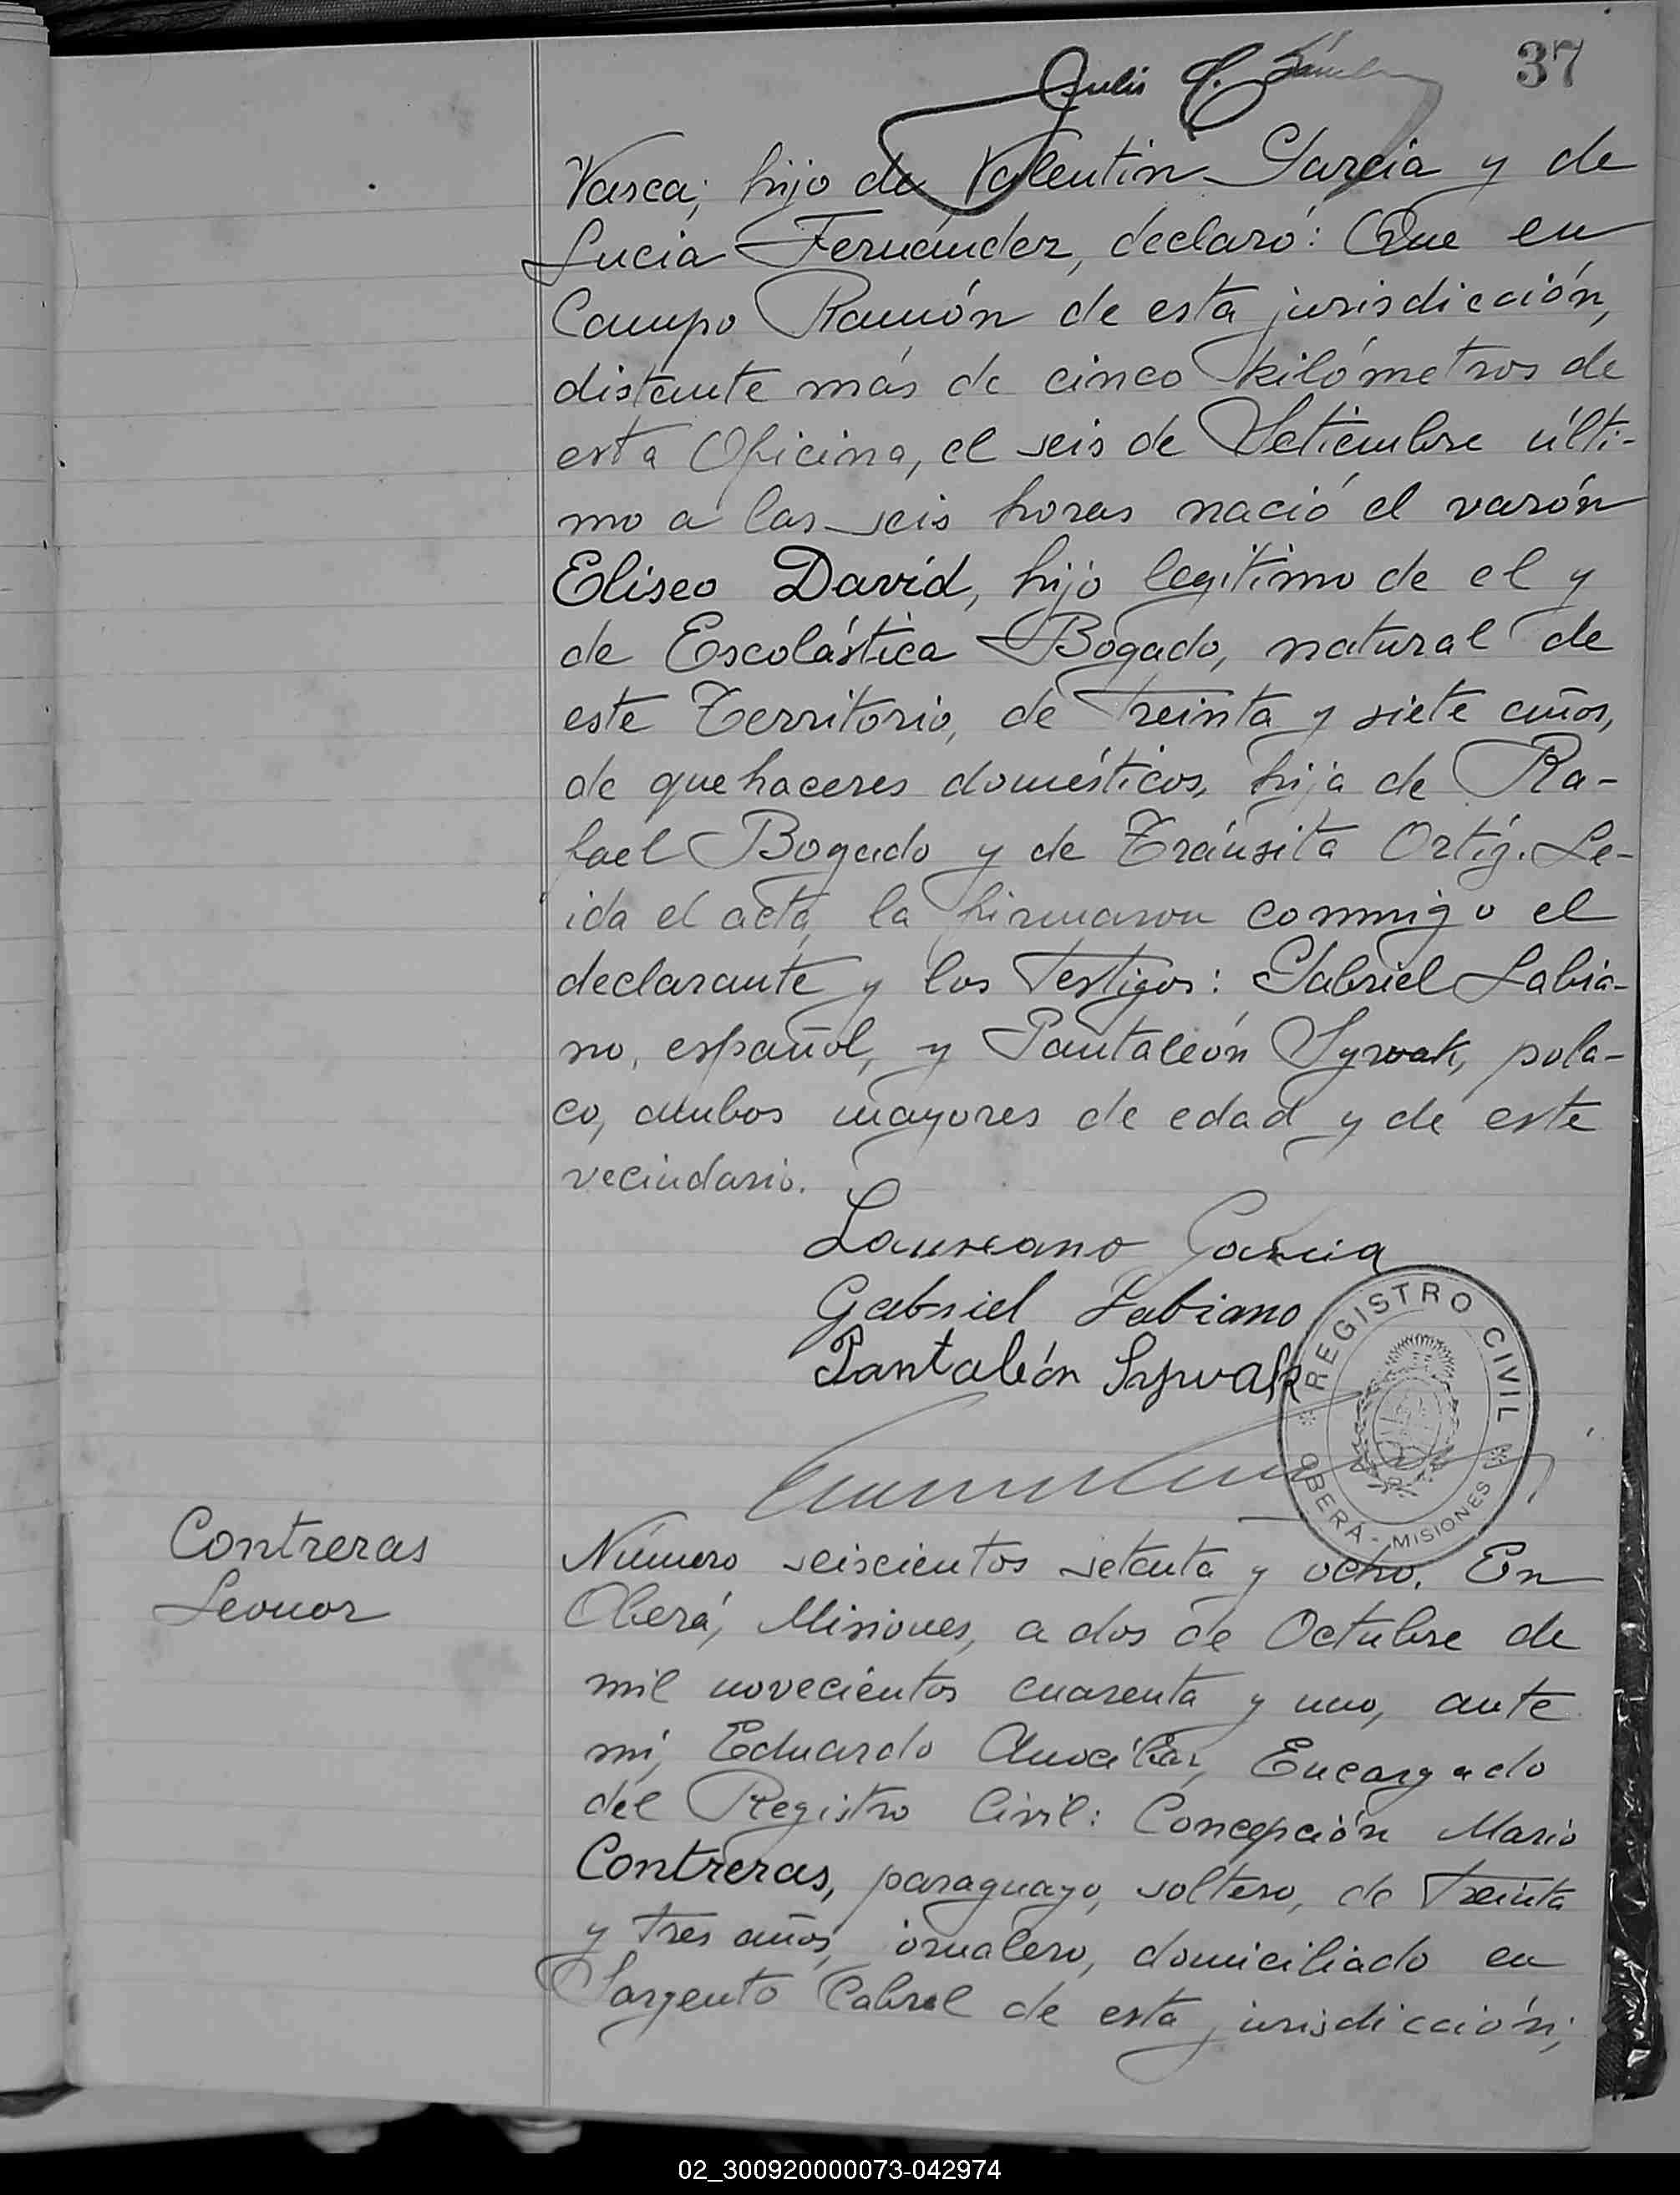 37
Julio
Vasca; hijo de Valentin Garcia y de
Lucia Fernández, declaró: Que en
Campo Ramón de esta jurisdicción,
distante más de cinco kilómetros de
esta Oficina, el seis de Setiembre últi-
mo a las seis horas nació el varón
Eliseo David, hijo legitimo de el y
de Escolástica Bogado, natural de
este Territorio, de treinta y siete años,
de quehaceres domésticos, hija de Ra-
fael Bogado y de Tránsita Ortíz. Le-
ida el acta, la firmaron conmigo el
declarante y los testigos: Gabriel Labia-
no, español, y Pantaleón Sywak, pola-
co, ambos mayores de edad y de este
vecindario.
Laureano Garcia
Gabriel Labiano
Pantaleón Sywak
REGISTRO CIVIL
OBERÁ - MISIONES
Contreras
Leonor
Número seiscientos setenta y ocho. En
Oberá, Misiones, a dos de Octubre de
mil novecientos cuarenta y uno, ante
mí, Eduardo Encargado
del Registro Civil: Concepción Mario
Contreras, paraguayo, soltero, de treinta
y tres años, jornalero, domiciliado en
Sargento Cabral de esta jurisdicción;
02_300920000073-042974